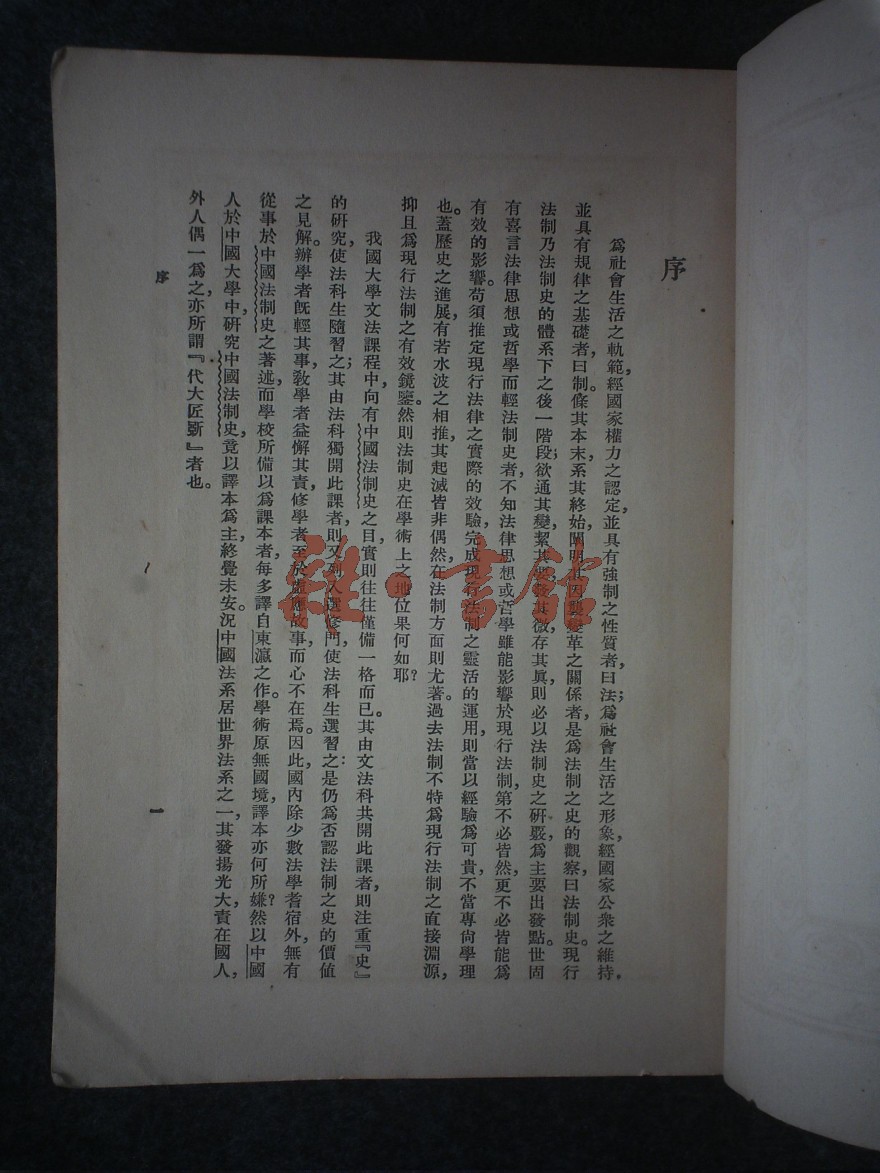 序
爲社會生活之軌範，經國家權力之認定，並具有強制之性質者，曰法；爲社會生活之形象，經國家公衆之維持，
並具有規律之基礎者，曰制。條其本末，系其終始，闡明其因襲變革之關係者，是爲法制之史的觀察，曰法制史。現行
法制乃法制史的體系下之後一階段；欲通其變，絜其要，發其微，存其眞，則必以法制史之硏覈，爲主要出發點。世固
有喜言法律思想或哲學而輕法制史者，不知法律思想或哲學雖能影響於現行法制，第不必皆然，更不必皆能爲
有效的影響。苟須推定現行法律之實際的效驗，完成現行法制之靈活的運用，則當以經驗爲可貴，不當專尙學理
也。蓋歷史之進展，有若水波之相推，其起滅皆非偶然，在法制方面則尤著。過去法制不特爲現行法制之直接淵源，
抑且爲現行法制之有效鏡鑒。然則法制史在學術上之地位果何如耶？
我國大學文法課程中，向有中國法制史之目，實則往往僅備一格而已。其由文法科共開此課者，則注重『史』
的硏究，使法科生隨習之；其由法科獨開此課者，則又列入選修門，使法科生選習之：是仍爲否認法制之史的價値
之見解。辦學者旣輕其事，敎學者益懈其責，修學者至於虛應故事，而心不在焉。因此，國內除少數法學耆宿外，無有
從事於中國法制史之著述，而學校所備以爲課本者，每多譯自東瀛之作。學術原無國境，譯本亦何所嫌？然以中國
人於中國大學中，硏究中國法制史，竟以譯本爲主，終覺未安。況中國法系居世界法系之一，其發揚光大，責在國人，
外人偶一爲之，亦所謂『代大匠斲』者也。
序
一
雜·書館